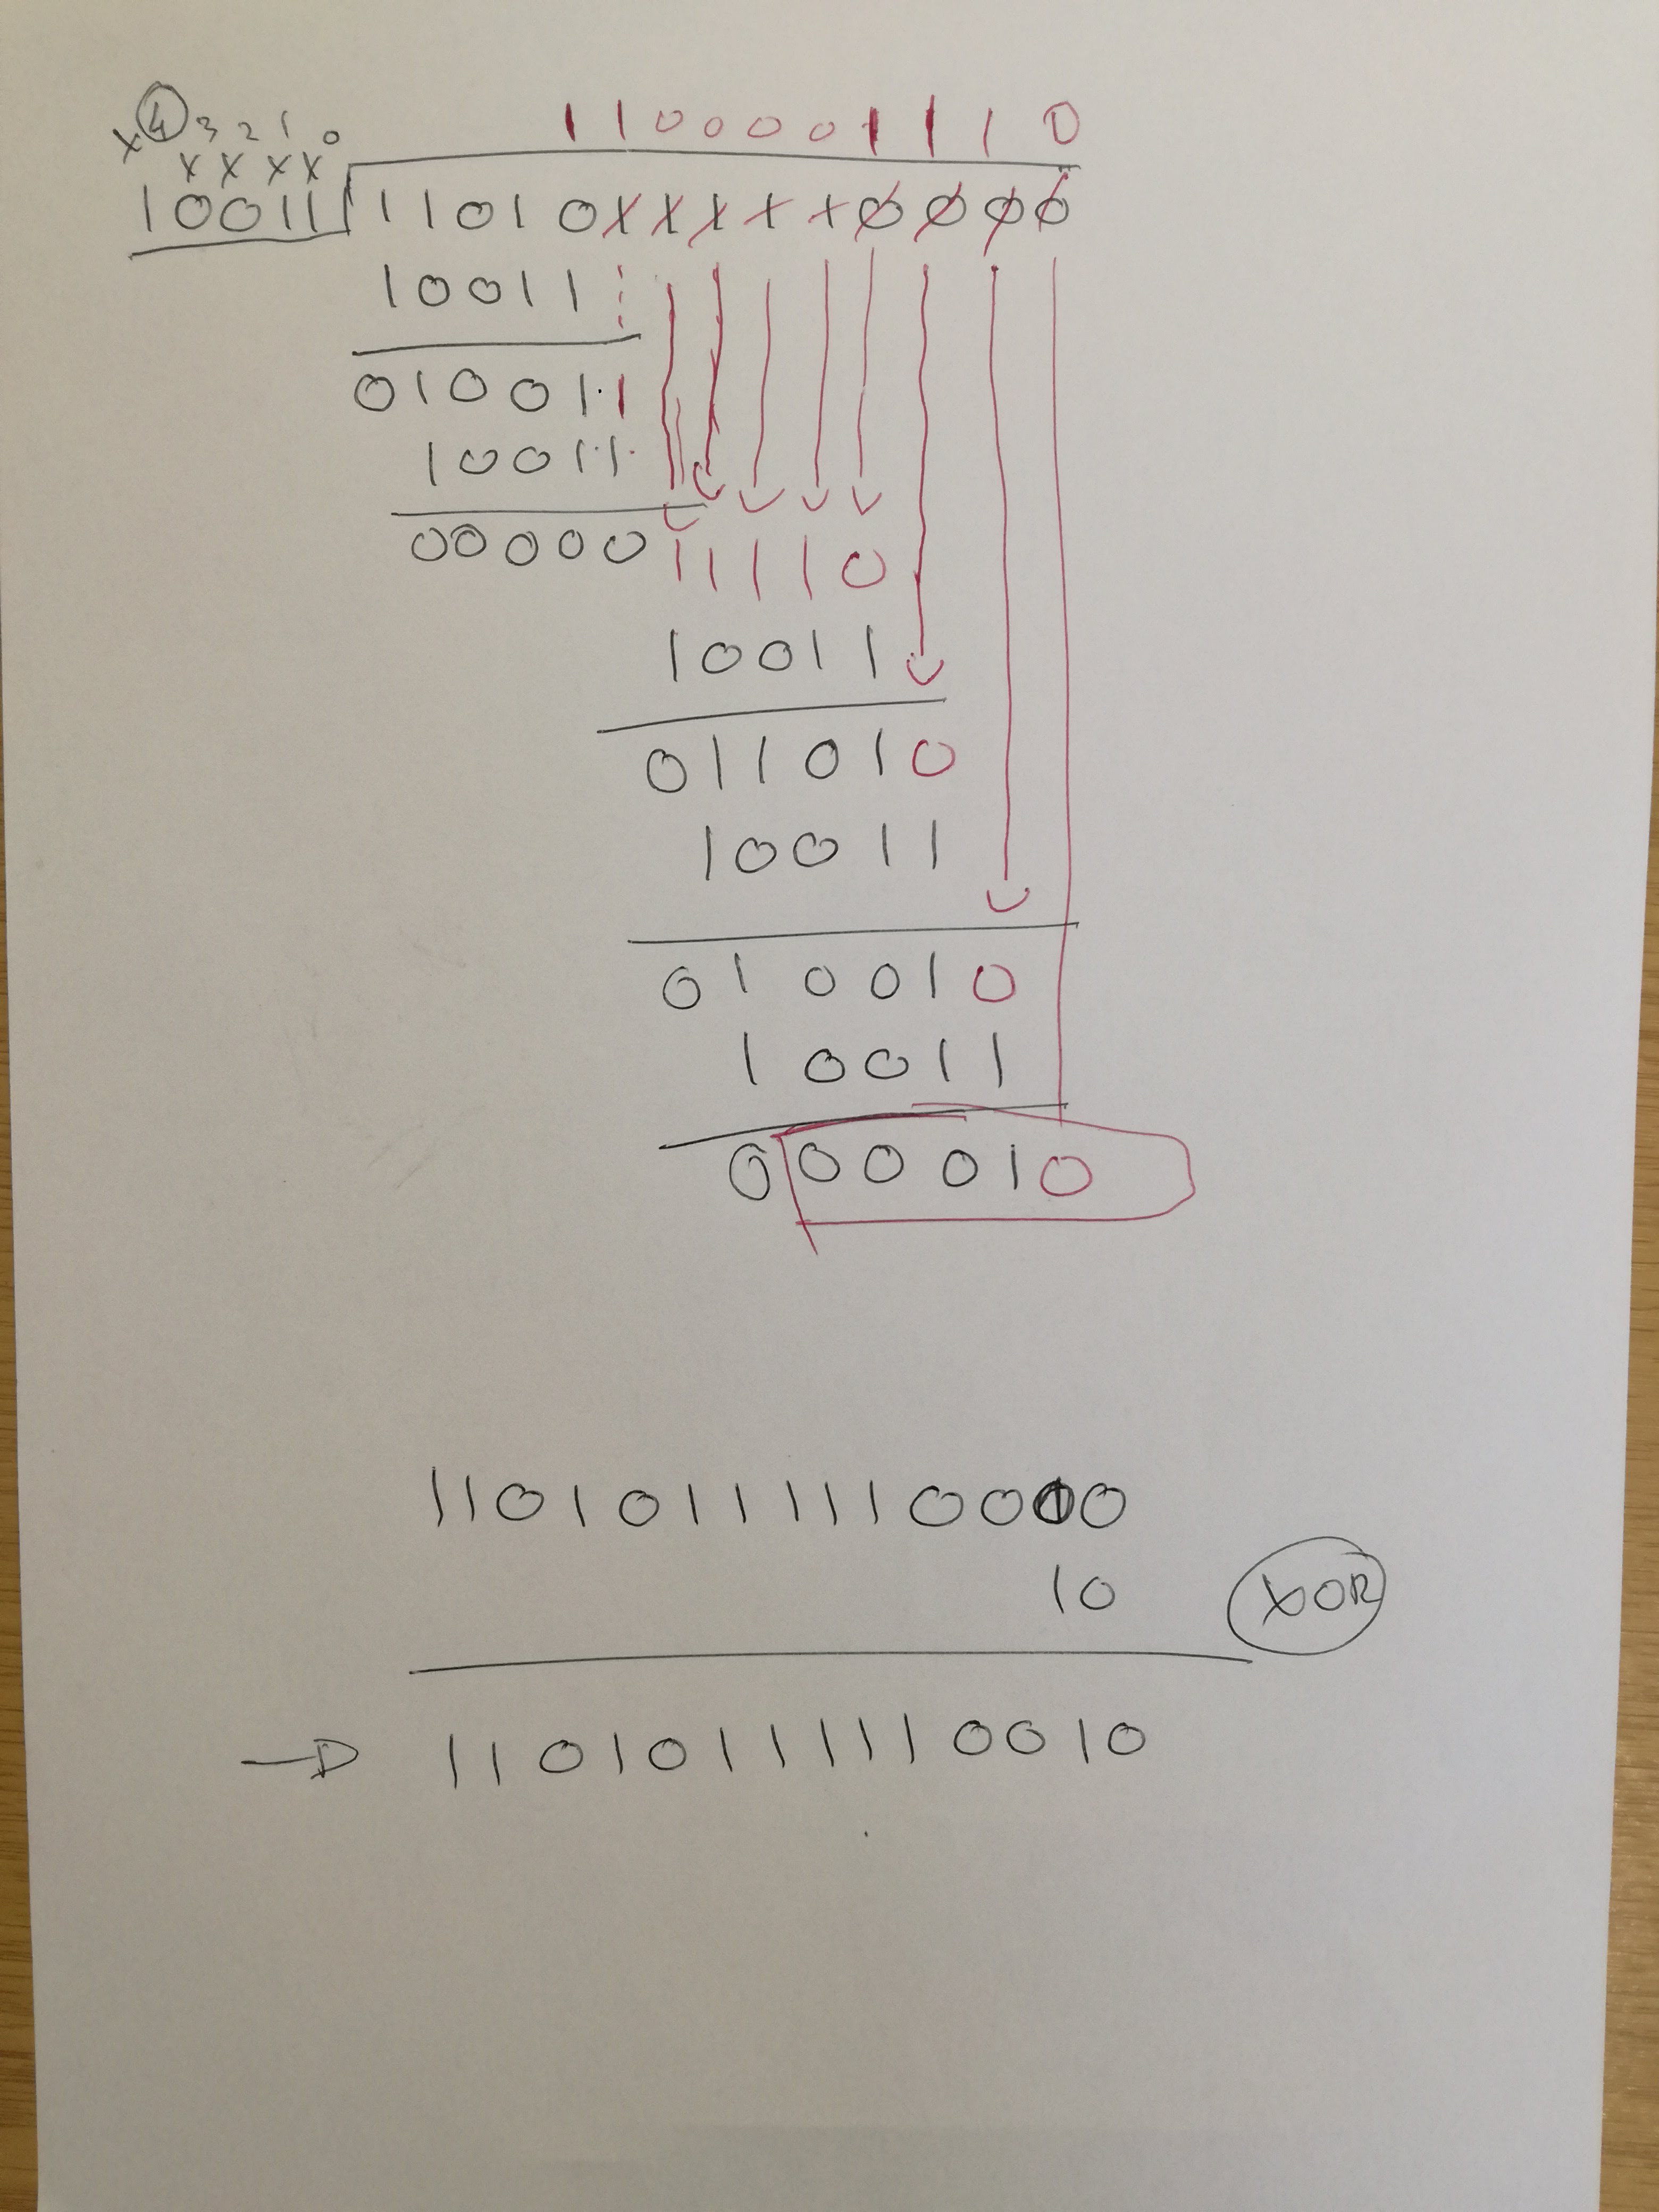 1100001110
x 4 3 2 1 0
x x x x
10011 11010111110000
10011
010011
10011
0000011110
10011
011010
10011
010010
10011
000010
11010111110000
10
XOR
→ 11010111110010